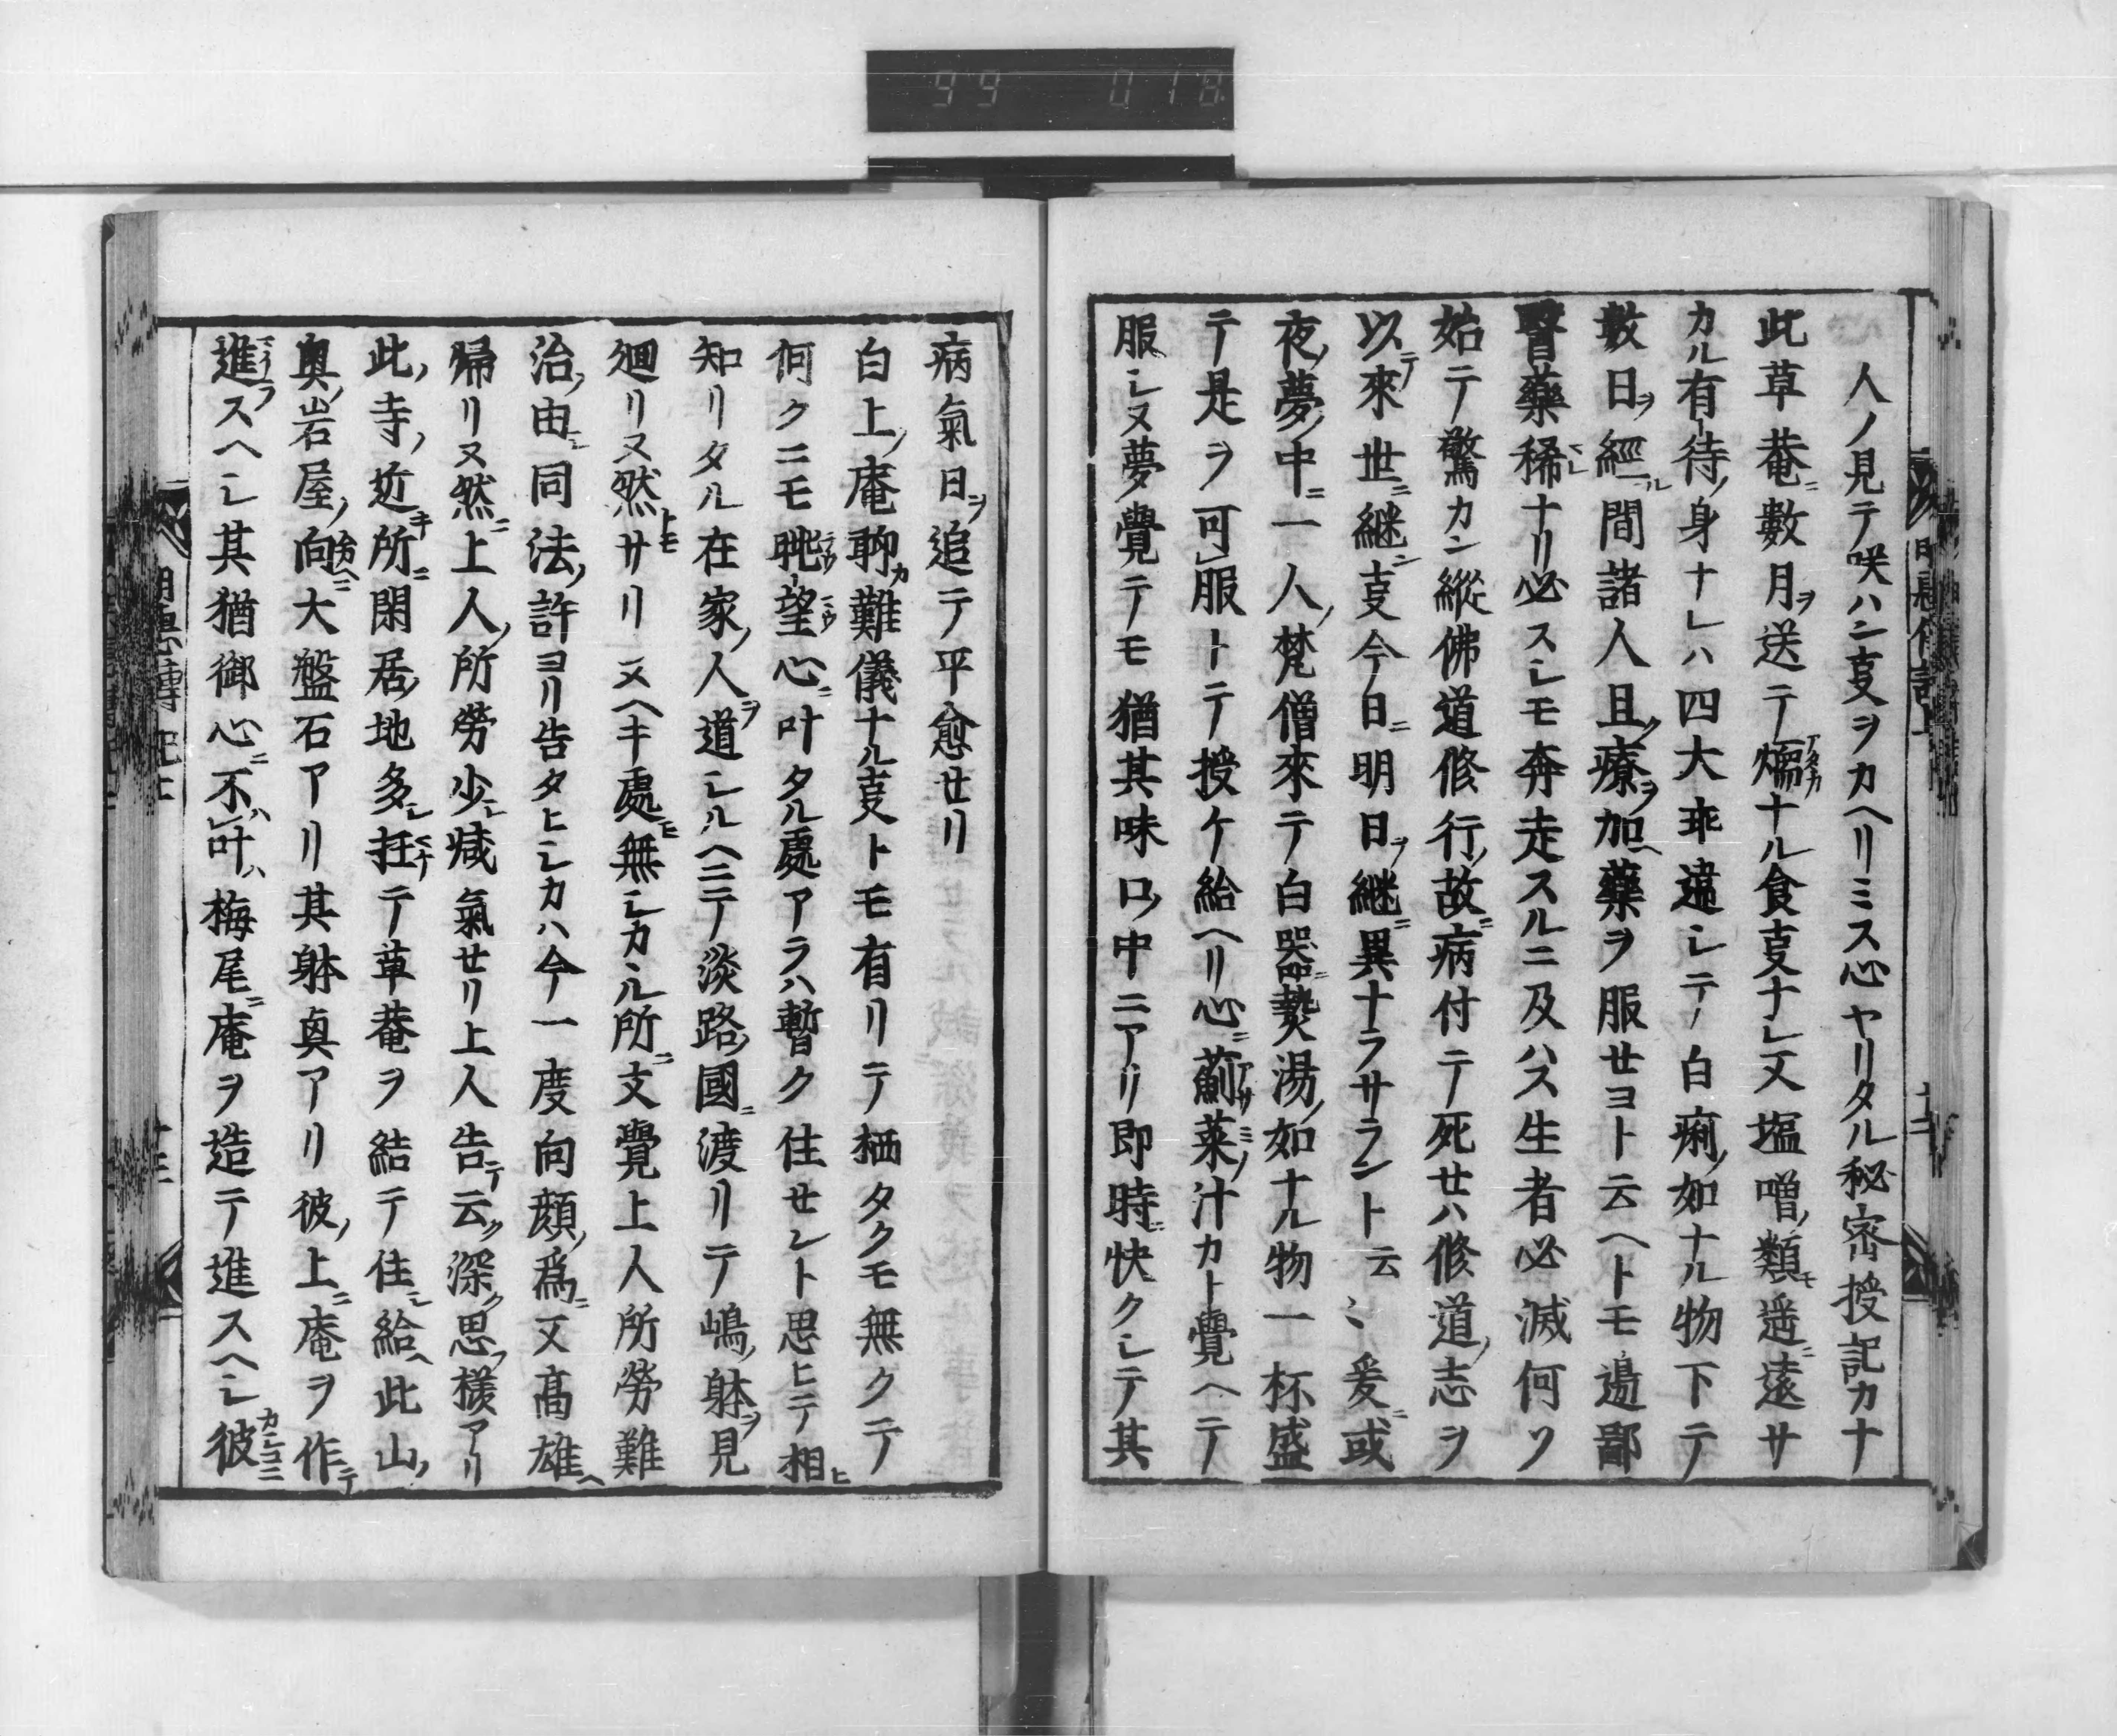 99 018
人ノ見テ咲ハン叓ヲカヘリミス心ヤリタル秘密授記カナ
此草菴ニ數月ヲ送テ煖ナル食叓ナレ又塩噌ノ類モ遥ニ遠サ
カル有待ノ身ナレハ四大乖違シテ白痢ノ如ナル物下テ
數日ヲ經ル間諸人且ク療ヲ加ヘ藥ヲ服セヨト云ヘトモ邊鄙
醫藥稀ナリ必スシモ奔走スルニ及ハス生者必滅何ソ
始テ驚カン縱佛道修行ノ故ニ病付テ死セハ修道ノ志ヲ
以テ來世ニ継ン叓今日ニ明日ヲ継ニ異ナラサラント云〻爰ニ或
夜ノ夢ノ中ニ一人ノ梵僧來テ白器ニ𤍠湯ノ如ナル物一杯盛
テ是ヲ可服トテ授ケ給ヘリ心ニ薊菜ノ汁カト覺ヘテ
服シヌ夢覺テモ猶其味口ノ中ニアリ即時ニ快クシテ其
病氣日ヲ追テ平愈セリ
白上ノ庵聊カ難儀ナル叓トモ有リテ栖タクモ無クテ
何クニモ眺望心ニ叶タル處アラハ暫ク住セント思ヒテ相ヒ
知リタル在家ノ人ヲ道シルヘニテ淡路ノ國ニ渡リテ嶋ノ躰ヲ見
廻リヌ然トモサリヌヘキ處モ無シカヽル所ニ文覺上人所勞難
治ノ由ニ同法ノ許ヨリ告タヒシカハ今一度向顔ノ爲ニ又髙雄ヘ
帰リヌ然ニ上人ノ所勞少シ減氣セリ上人告テ云ク深ク思フ様アリ
此ノ寺ノ近キ所ニ閑居ノ地多シ抂テ草菴ヲ結テ住シ給ヘ此山ノ
奥ノ岩屋ノ向ヘニ大盤石アリ其躰奥アリ彼ノ上ニ庵ヲ作テ
進スヘシ其猶御心ニ不叶ハ梅尾ニ庵ヲ造テ進スヘシ彼